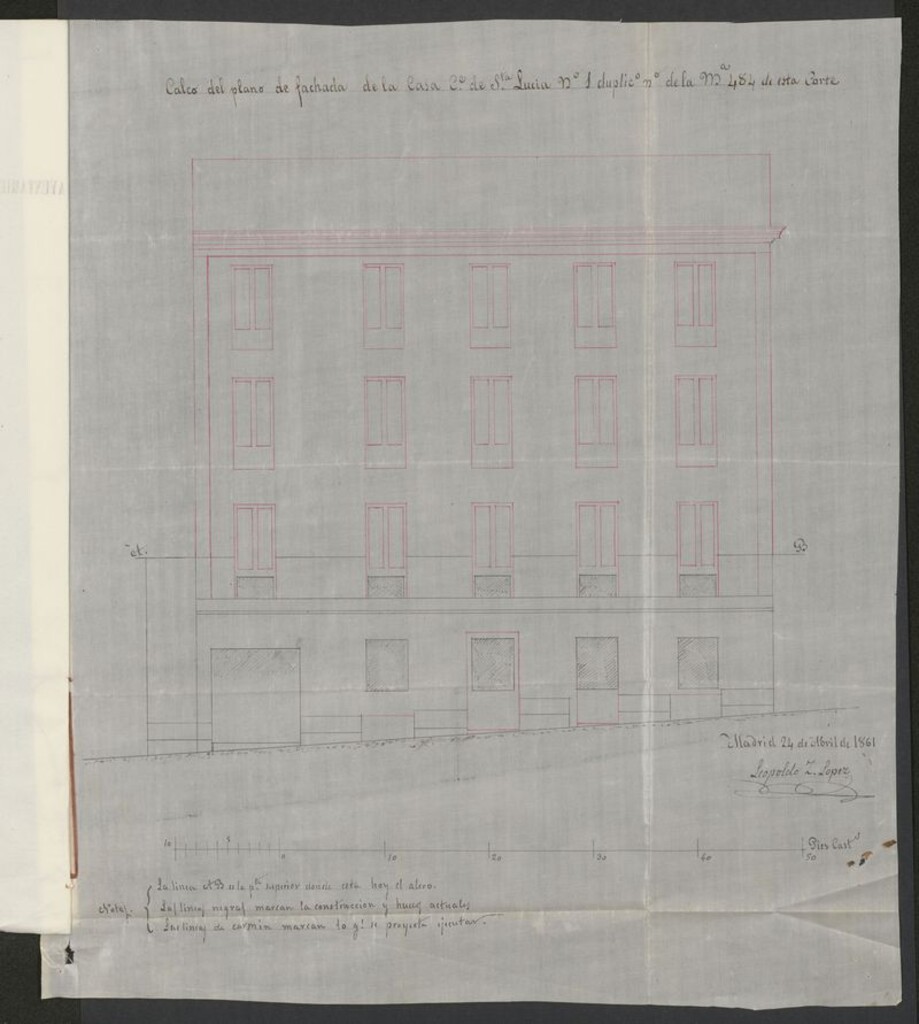 Calco del plano de fachada de la Casa C.e de S.ta Lucia Nº 1 duplic.º nº de la M.a 484 de esta Corte
A.
B
Madrid 24 de Abril de 1861
Leopoldo Z. Lopez
10 5 0 10 20 30 40 50 Pies Cast.s
Notas.
La linea AB es la p.te superior donde esta hoy el alero.
Las lineas negras marcan la construccion y huecos actuales
Las lineas de carmin marcan lo q.e se proyecta ejecutar.